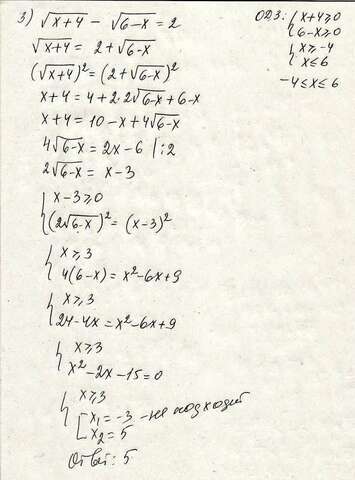 3) √(x+4) - √(6-x) = 2
ОДЗ: { x+4≥0
6-x≥0
{ x≥-4
x≤6
-4≤x≤6
√(x+4) = 2+√(6-x)
(√(x+4))² = (2+√(6-x))²
x+4 = 4+2·2√(6-x)+6-x
x+4 = 10-x+4√(6-x)
4√(6-x) = 2x-6 |:2
2√(6-x) = x-3
{ x-3≥0
(2√(6-x))² = (x-3)²
{ x≥3
4(6-x) = x²-6x+9
{ x≥3
24-4x = x²-6x+9
{ x≥3
x²-2x-15=0
{ x≥3
[ x₁=-3 - не подходит
x₂=5
Ответ: 5